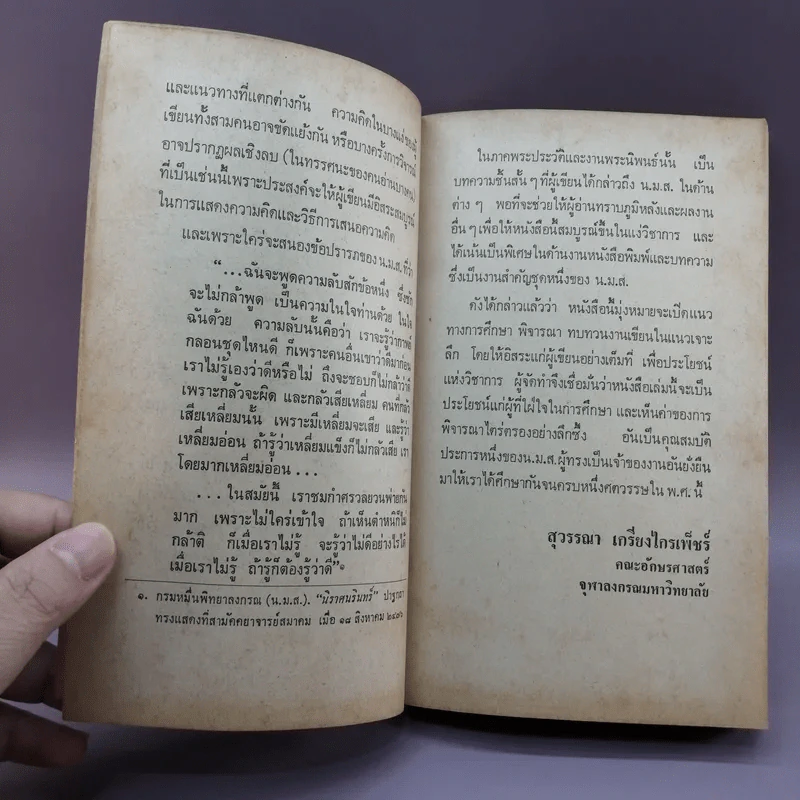 และแนวทางที่แตกต่างกัน ความคิดในบางแง่ของผู้
เขียนทั้งสามคนอาจขัดแย้งกัน หรือบางครั้งการวิจารณ์
อาจปรากฏผลเชิงลบ (ในทรรศนะของคนอ่านบางคน)
ที่เป็นเช่นนี้เพราะประสงค์จะให้ผู้เขียนมีอิสระสมบูรณ์
ในการแสดงความคิดและวิธีการเสนอความคิด
และเพราะใคร่จะสนองข้อปรารภของ น.ม.ส. ที่ว่า
“...ฉันจะพูดความลับสักข้อหนึ่ง ซึ่ง
จะไม่กล้าพูด เป็นความในใจท่านด้วย ในใจ
ฉันด้วย ความลับนั้นคือว่า เราจะรู้ว่ากาพย์
กลอนชุดไหนดี ก็เพราะคนอื่นเขาว่าดีมาก่อน
เราไม่รู้เองว่าดีหรือไม่ ถึงจะชอบก็ไม่กล้าว่าดี
เพราะกลัวจะผิด และกลัวเสียเหลี่ยม คนที่กลัว
เสียเหลี่ยมนั้น เพราะมีเหลี่ยมจะเสีย และรู้ว่า
เหลี่ยมอ่อน ถ้ารู้ว่าเหลี่ยมแข็งก็ไม่กลัวเสีย เรา
โดยมากเหลี่ยมอ่อน ...
... ในสมัยนี้ เราชมกำศรวลยวนพ่ายกัน
มาก เพราะไม่ใคร่เข้าใจ ถ้าเห็นตำหนิก็ไม่
กล้าติ ก็เมื่อเราไม่รู้ จะรู้ว่าไม่ดีอย่างไรได้
เมื่อเราไม่รู้ ถ้ารู้ก็ต้องรู้ว่าดี”๑
๑. กรมหมื่นพิทยาลงกรณ (น.ม.ส.). “นิราศนรินทร์” ปาฐกถา
ทรงแสดงที่สามัคคยาจารย์สมาคม เมื่อ ๑๘ สิงหาคม
ในภาคพระประวัติและงานพระนิพนธ์นั้น เป็น
บทความชิ้นสั้น ๆ ที่ผู้เขียนได้กล่าวถึง น.ม.ส. ในด้าน
ต่าง ๆ พอที่จะช่วยให้ผู้อ่านทราบภูมิหลังและผลงาน
อื่น ๆ เพื่อให้หนังสือนี้สมบูรณ์ขึ้นในแง่วิชาการ และ
ได้เน้นเป็นพิเศษในด้านงานหนังสือพิมพ์และบทความ
ซึ่งเป็นงานสำคัญชุดหนึ่งของ น.ม.ส.
ดังได้กล่าวแล้วว่า หนังสือนี้มุ่งหมายจะเปิดแนว
ทางการศึกษา พิจารณา ทบทวนงานเขียนในแนวเจาะ
ลึก โดยให้อิสระแก่ผู้เขียนอย่างเต็มที่ เพื่อประโยชน์
แห่งวิชาการ ผู้จัดทำจึงเชื่อมั่นว่าหนังสือเล่มนี้จะเป็น
ประโยชน์แก่ผู้ที่ใฝ่ใจในการศึกษา และเห็นค่าของการ
พิจารณาไตร่ตรองอย่างลึกซึ้ง อันเป็นคุณสมบัติ
ประการหนึ่งของ น.ม.ส. ผู้ทรงเป็นเจ้าของงานอันยั่งยืน
มาให้เราได้ศึกษากันจนครบหนึ่งศตวรรษใน พ.ศ. นี้
สุวรรณา เกรียงไกรเพ็ชร์
คณะอักษรศาสตร์
จุฬาลงกรณมหาวิทยาลัย